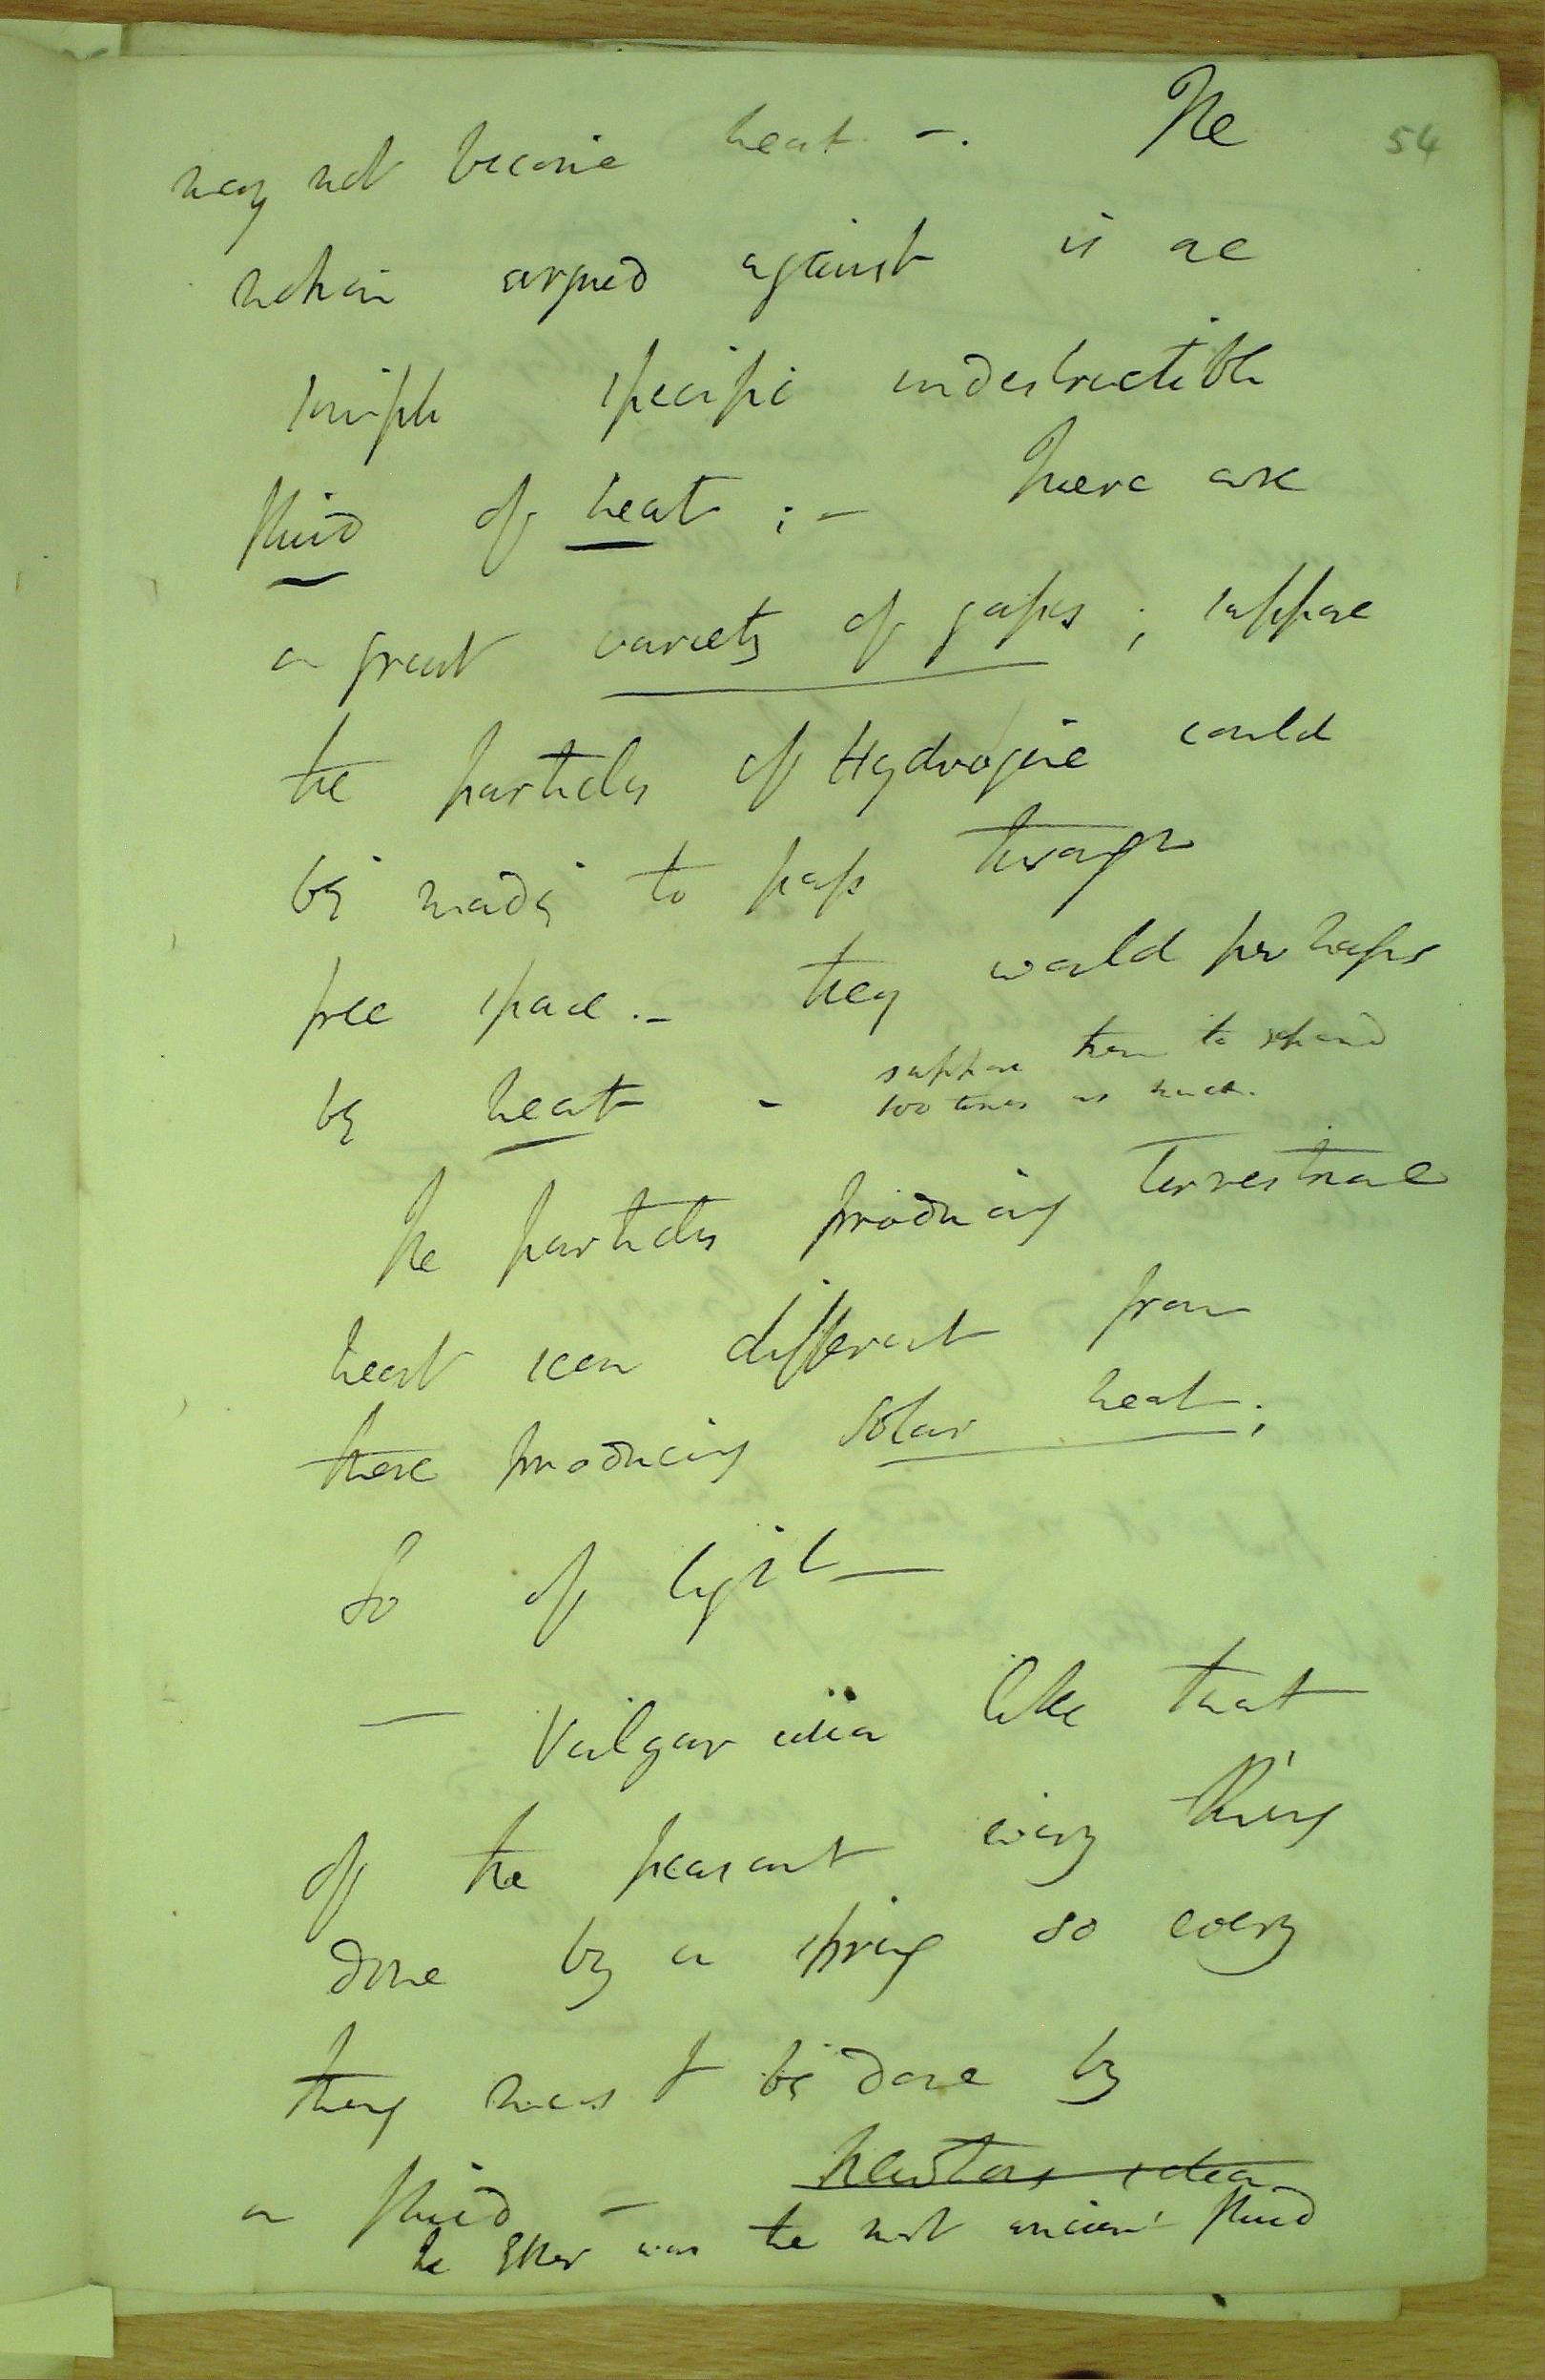 54
may not become heat -. The
notion argued against is ae
simple specific indestructible
fluid of heat ; - There are
a great variety of gases ; suppose
the particles of Hydrogene could
be made to pass through
free space .- they would perhaps
be heat - suppose them to expand
100 times as much.
The particles producing Terrestrial
heat seem different from
those producing Solar heat;
So of light —
— Vulgar idea like that
of the peasant every thing
done by a spring so every
thing must be done by
a fluid — Newtons idea
The Ether was the most ancient fluid